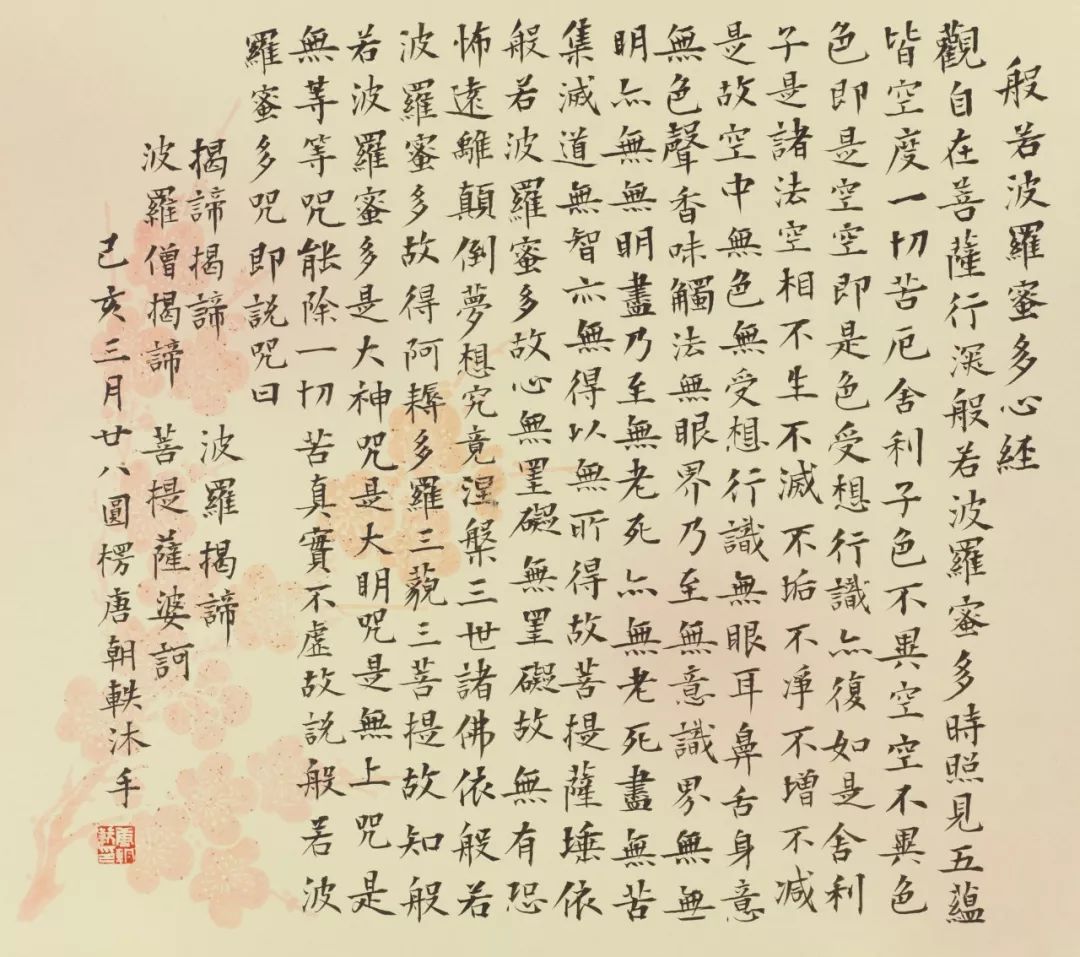 般若波羅蜜多心経
觀自在菩薩行深般若波羅蜜多時照見五蘊
皆空度一切苦厄舍利子色不異空空不異色
色即是空空即是色受想行識亦復如是舍利
子是諸法空相不生不滅不垢不淨不增不減
是故空中無色無受想行識無眼耳鼻舌身意
無色聲香味觸法無眼界乃至無意識界無無
明亦無無明盡乃至無老死亦無老死盡無苦
集滅道無智亦無得以無所得故菩提薩埵依
般若波羅蜜多故心無罣礙無罣礙故無有恐
怖遠離顛倒夢想究竟涅槃三世諸佛依般若
波羅蜜多故得阿耨多羅三藐三菩提故知般
若波羅蜜多是大神咒是大明咒是無上咒是
無等等咒能除一切苦真實不虛故説般若波
羅蜜多咒即説咒曰
揭諦揭諦 波羅揭諦
波羅僧揭諦 菩提薩婆訶
己亥三月廿八圓楞唐朝軼沐手